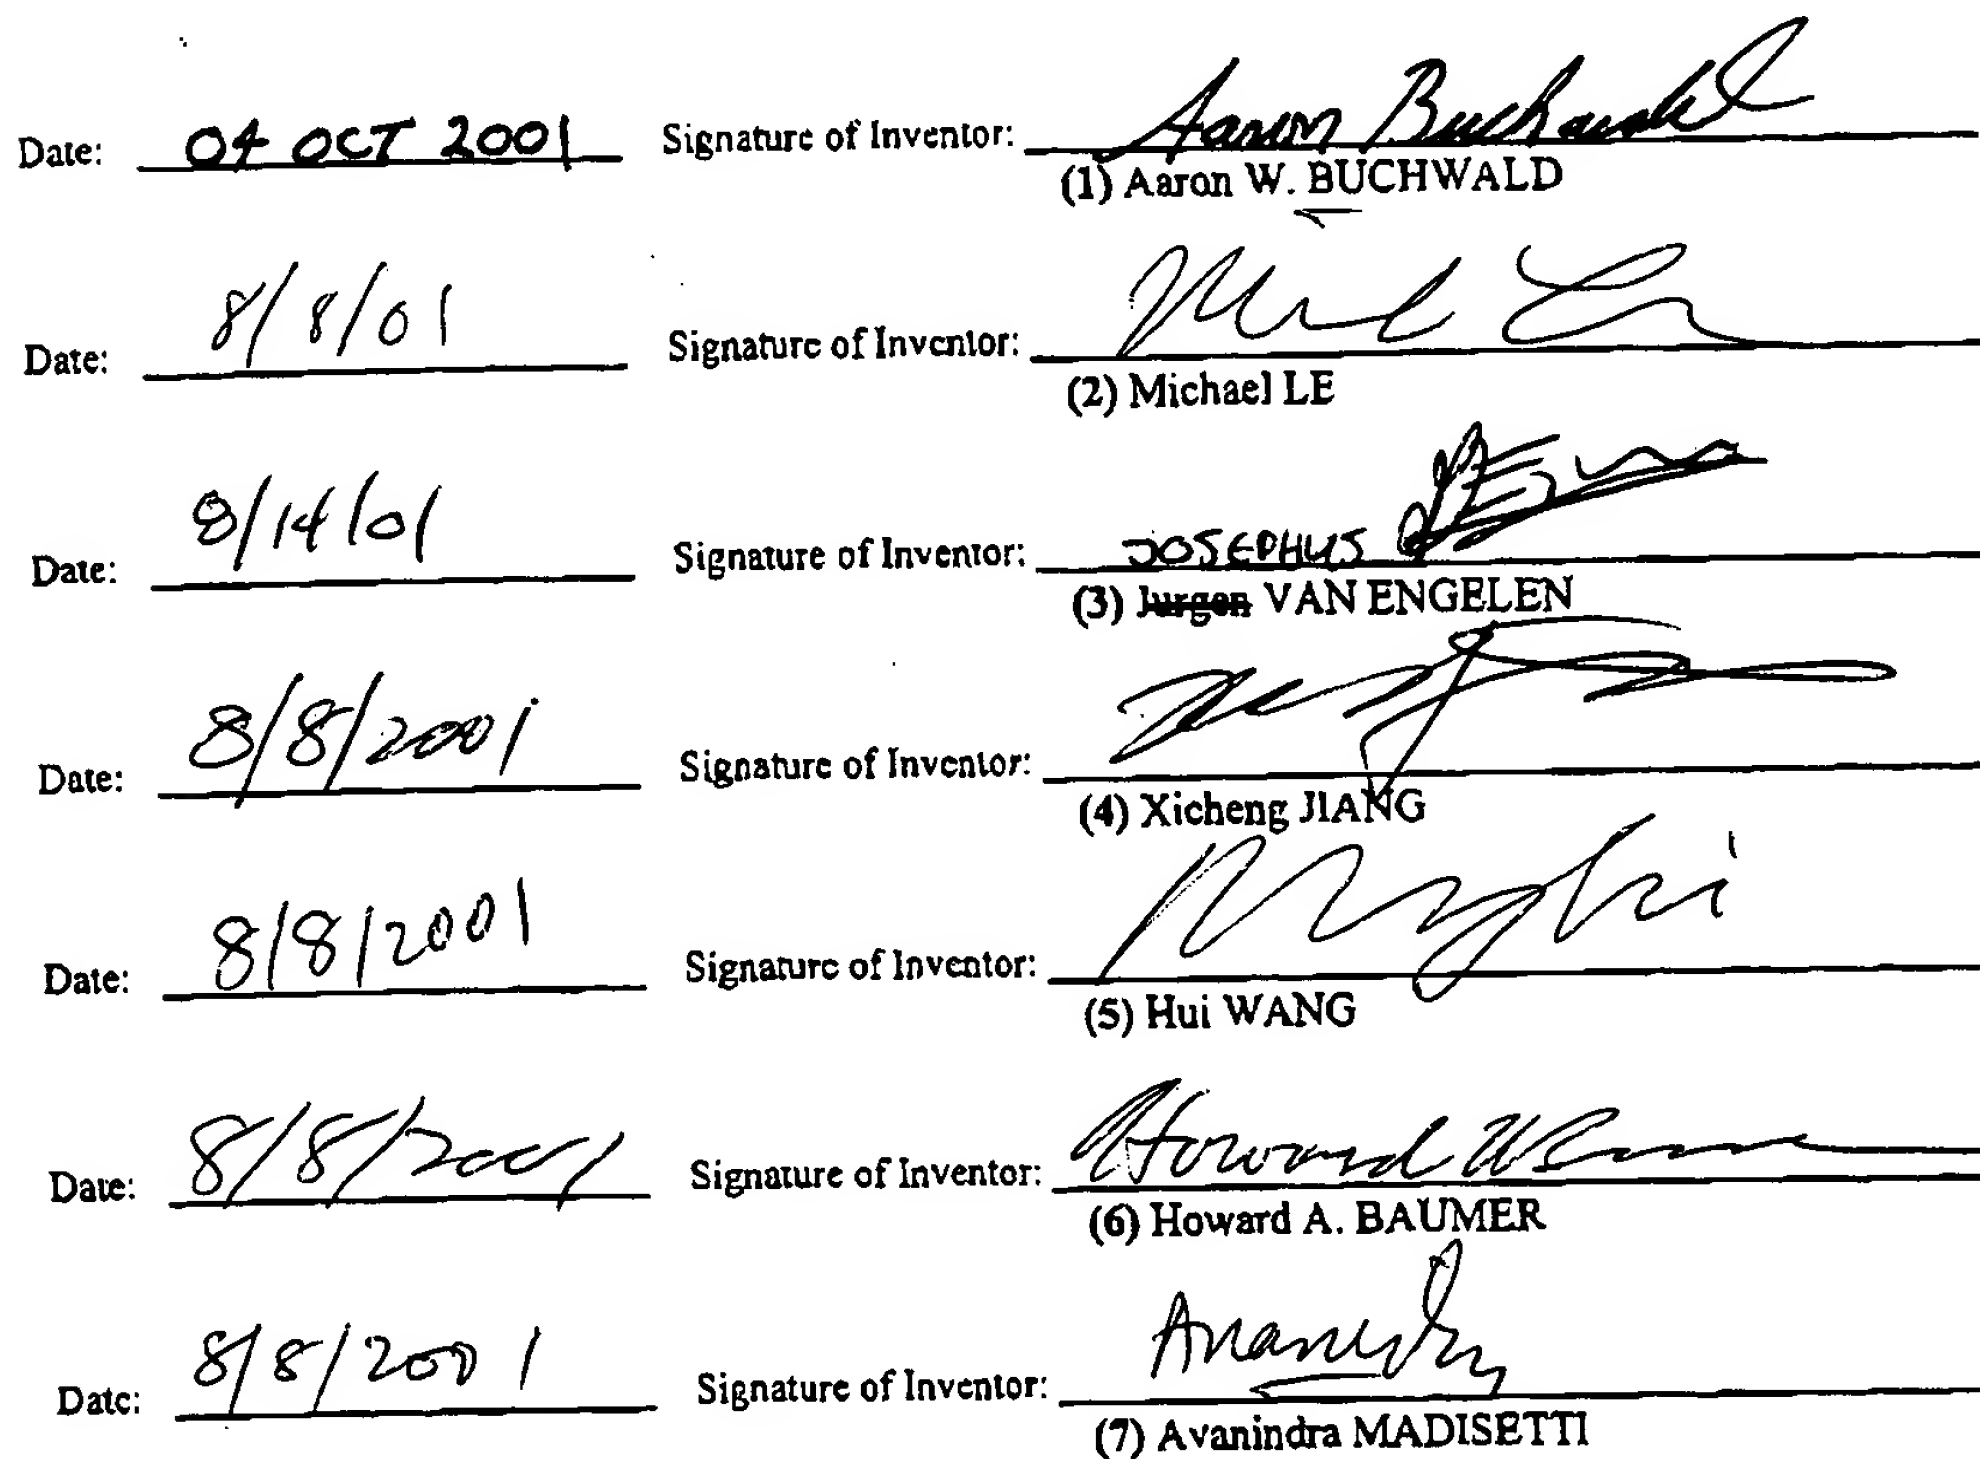 Date: 04 OCT 2001 Signature of Inventor: Aaron Buchwald
(1) Aaron W. BUCHWALD
Date: 8/8/01 Signature of Inventor:
(2) Michael LE
Date: 8/14/01 Signature of Inventor: JOSEPHUS
(3) Jurgen VAN ENGELEN
Date: 8/8/2001 Signature of Inventor:
(4) Xicheng JIANG
Date: 8/8/2001 Signature of Inventor:
(5) Hui WANG
Date: 8/8/2001 Signature of Inventor: Howard
(6) Howard A. BAUMER
Date: 8/8/2001 Signature of Inventor:
(7) Avanindra MADISETTI